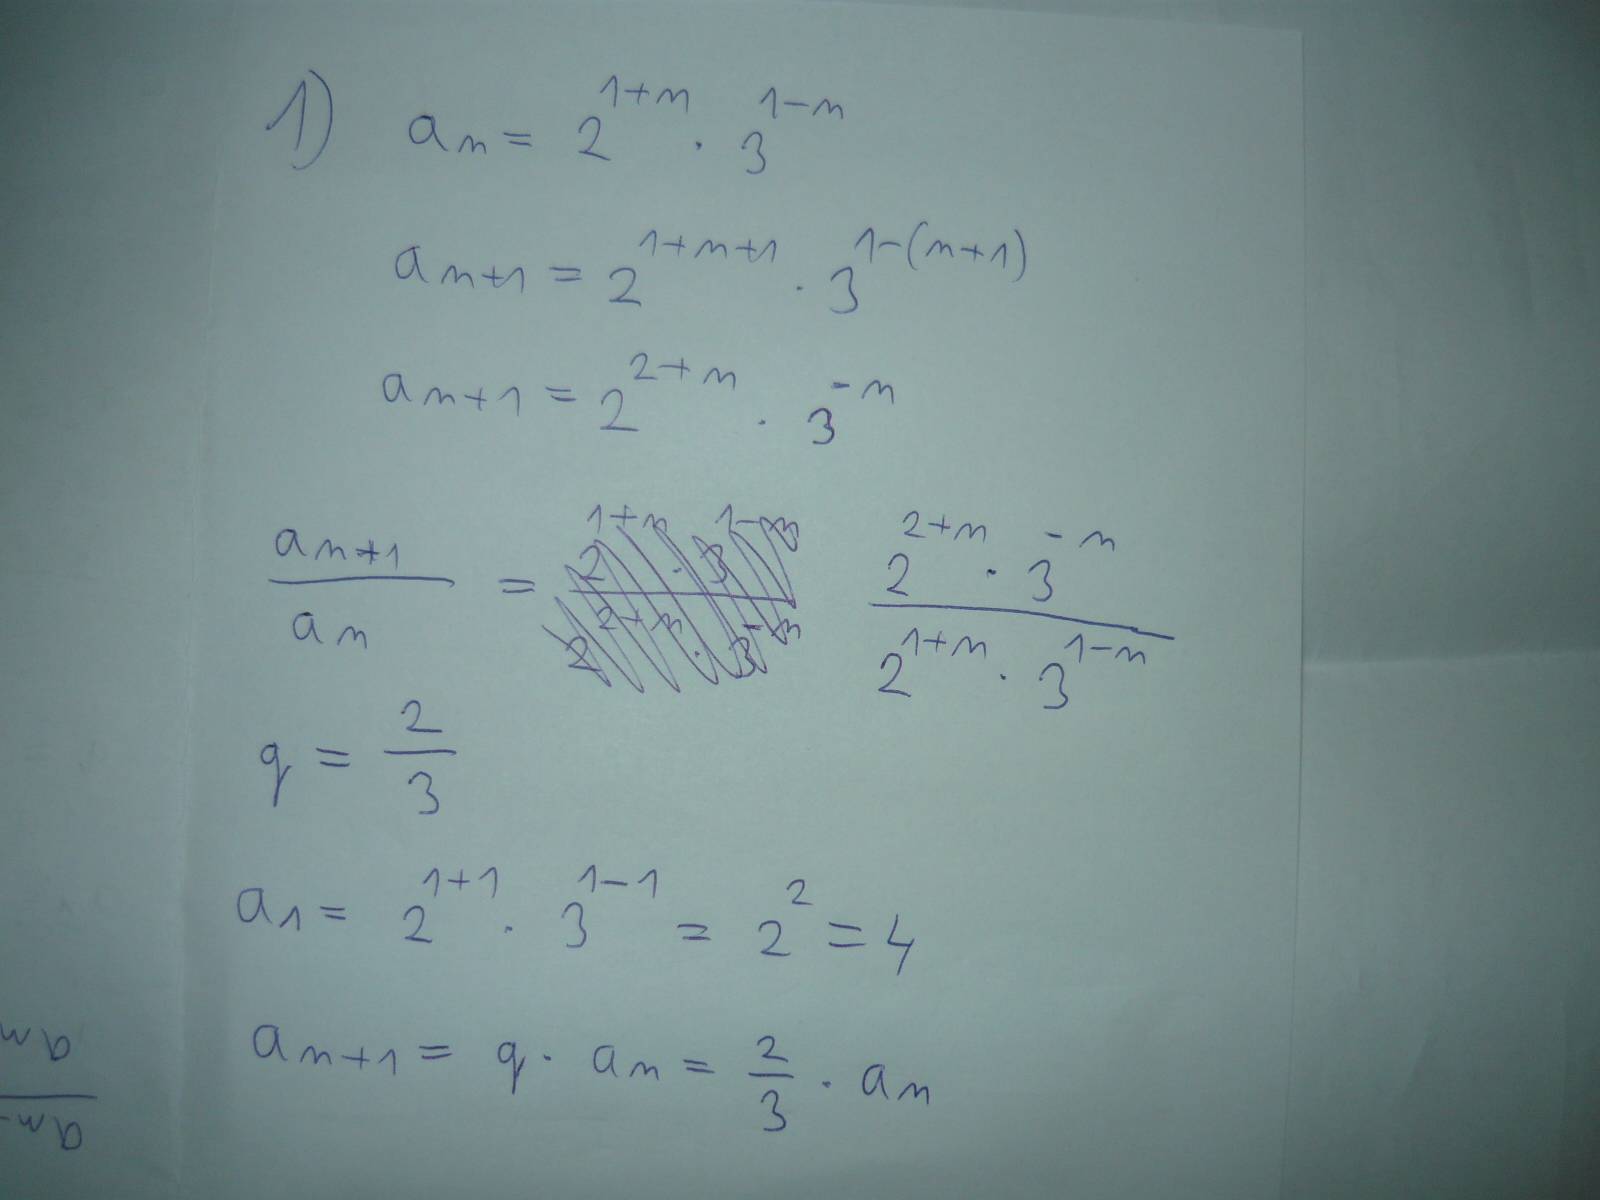 1) aₙ = 2¹⁺ⁿ · 3¹⁻ⁿ
aₙ₊₁ = 2¹⁺ⁿ⁺¹ · 3¹⁻⁽ⁿ⁺¹⁾
aₙ₊₁ = 2²⁺ⁿ · 3⁻ⁿ
aₙ₊₁ / aₙ = (2²⁺ⁿ · 3⁻ⁿ) / (2¹⁺ⁿ · 3¹⁻ⁿ)
q = 2/3
a₁ = 2¹⁺¹ · 3¹⁻¹ = 2² = 4
aₙ₊₁ = q · aₙ = 2/3 · aₙ